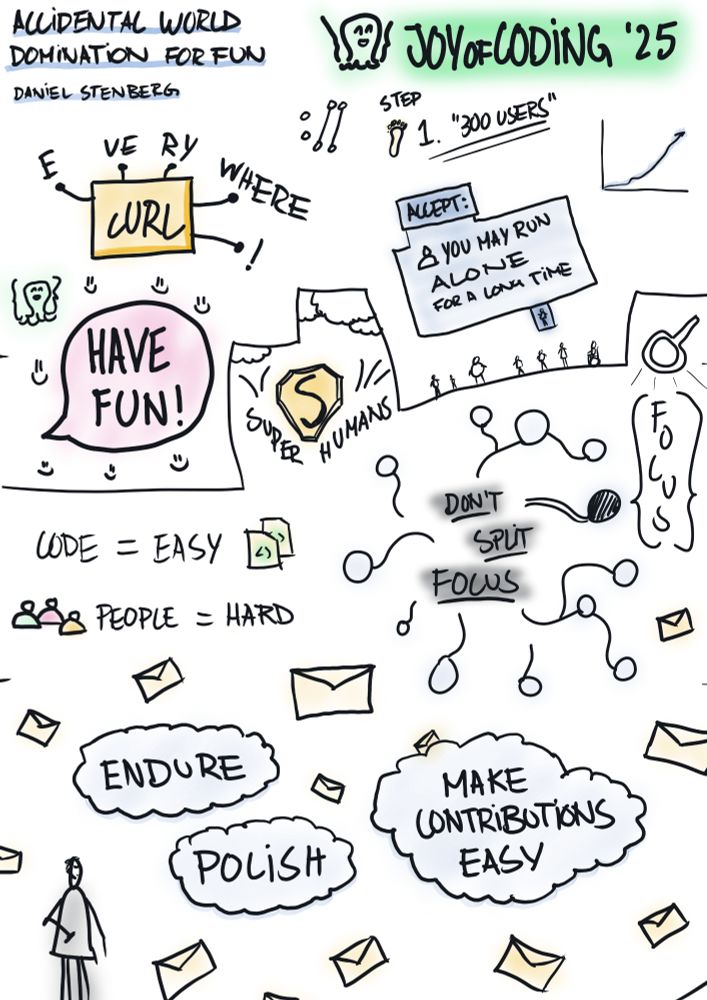 ACCIDENTAL WORLD
DOMINATION FOR FUN
DANIEL STENBERG
JOY OF CODING '25
STEP
1. "300 USERS"
E VE RY WHERE !
cURL
ACCEPT:
YOU MAY RUN
ALONE
FOR A LONG TIME
HAVE
FUN!
S
SUPER HUMANS
FOCUS
DON'T
SPLIT
FOCUS
CODE = EASY
<>
PEOPLE = HARD
ENDURE
POLISH
MAKE
CONTRIBUTIONS
EASY